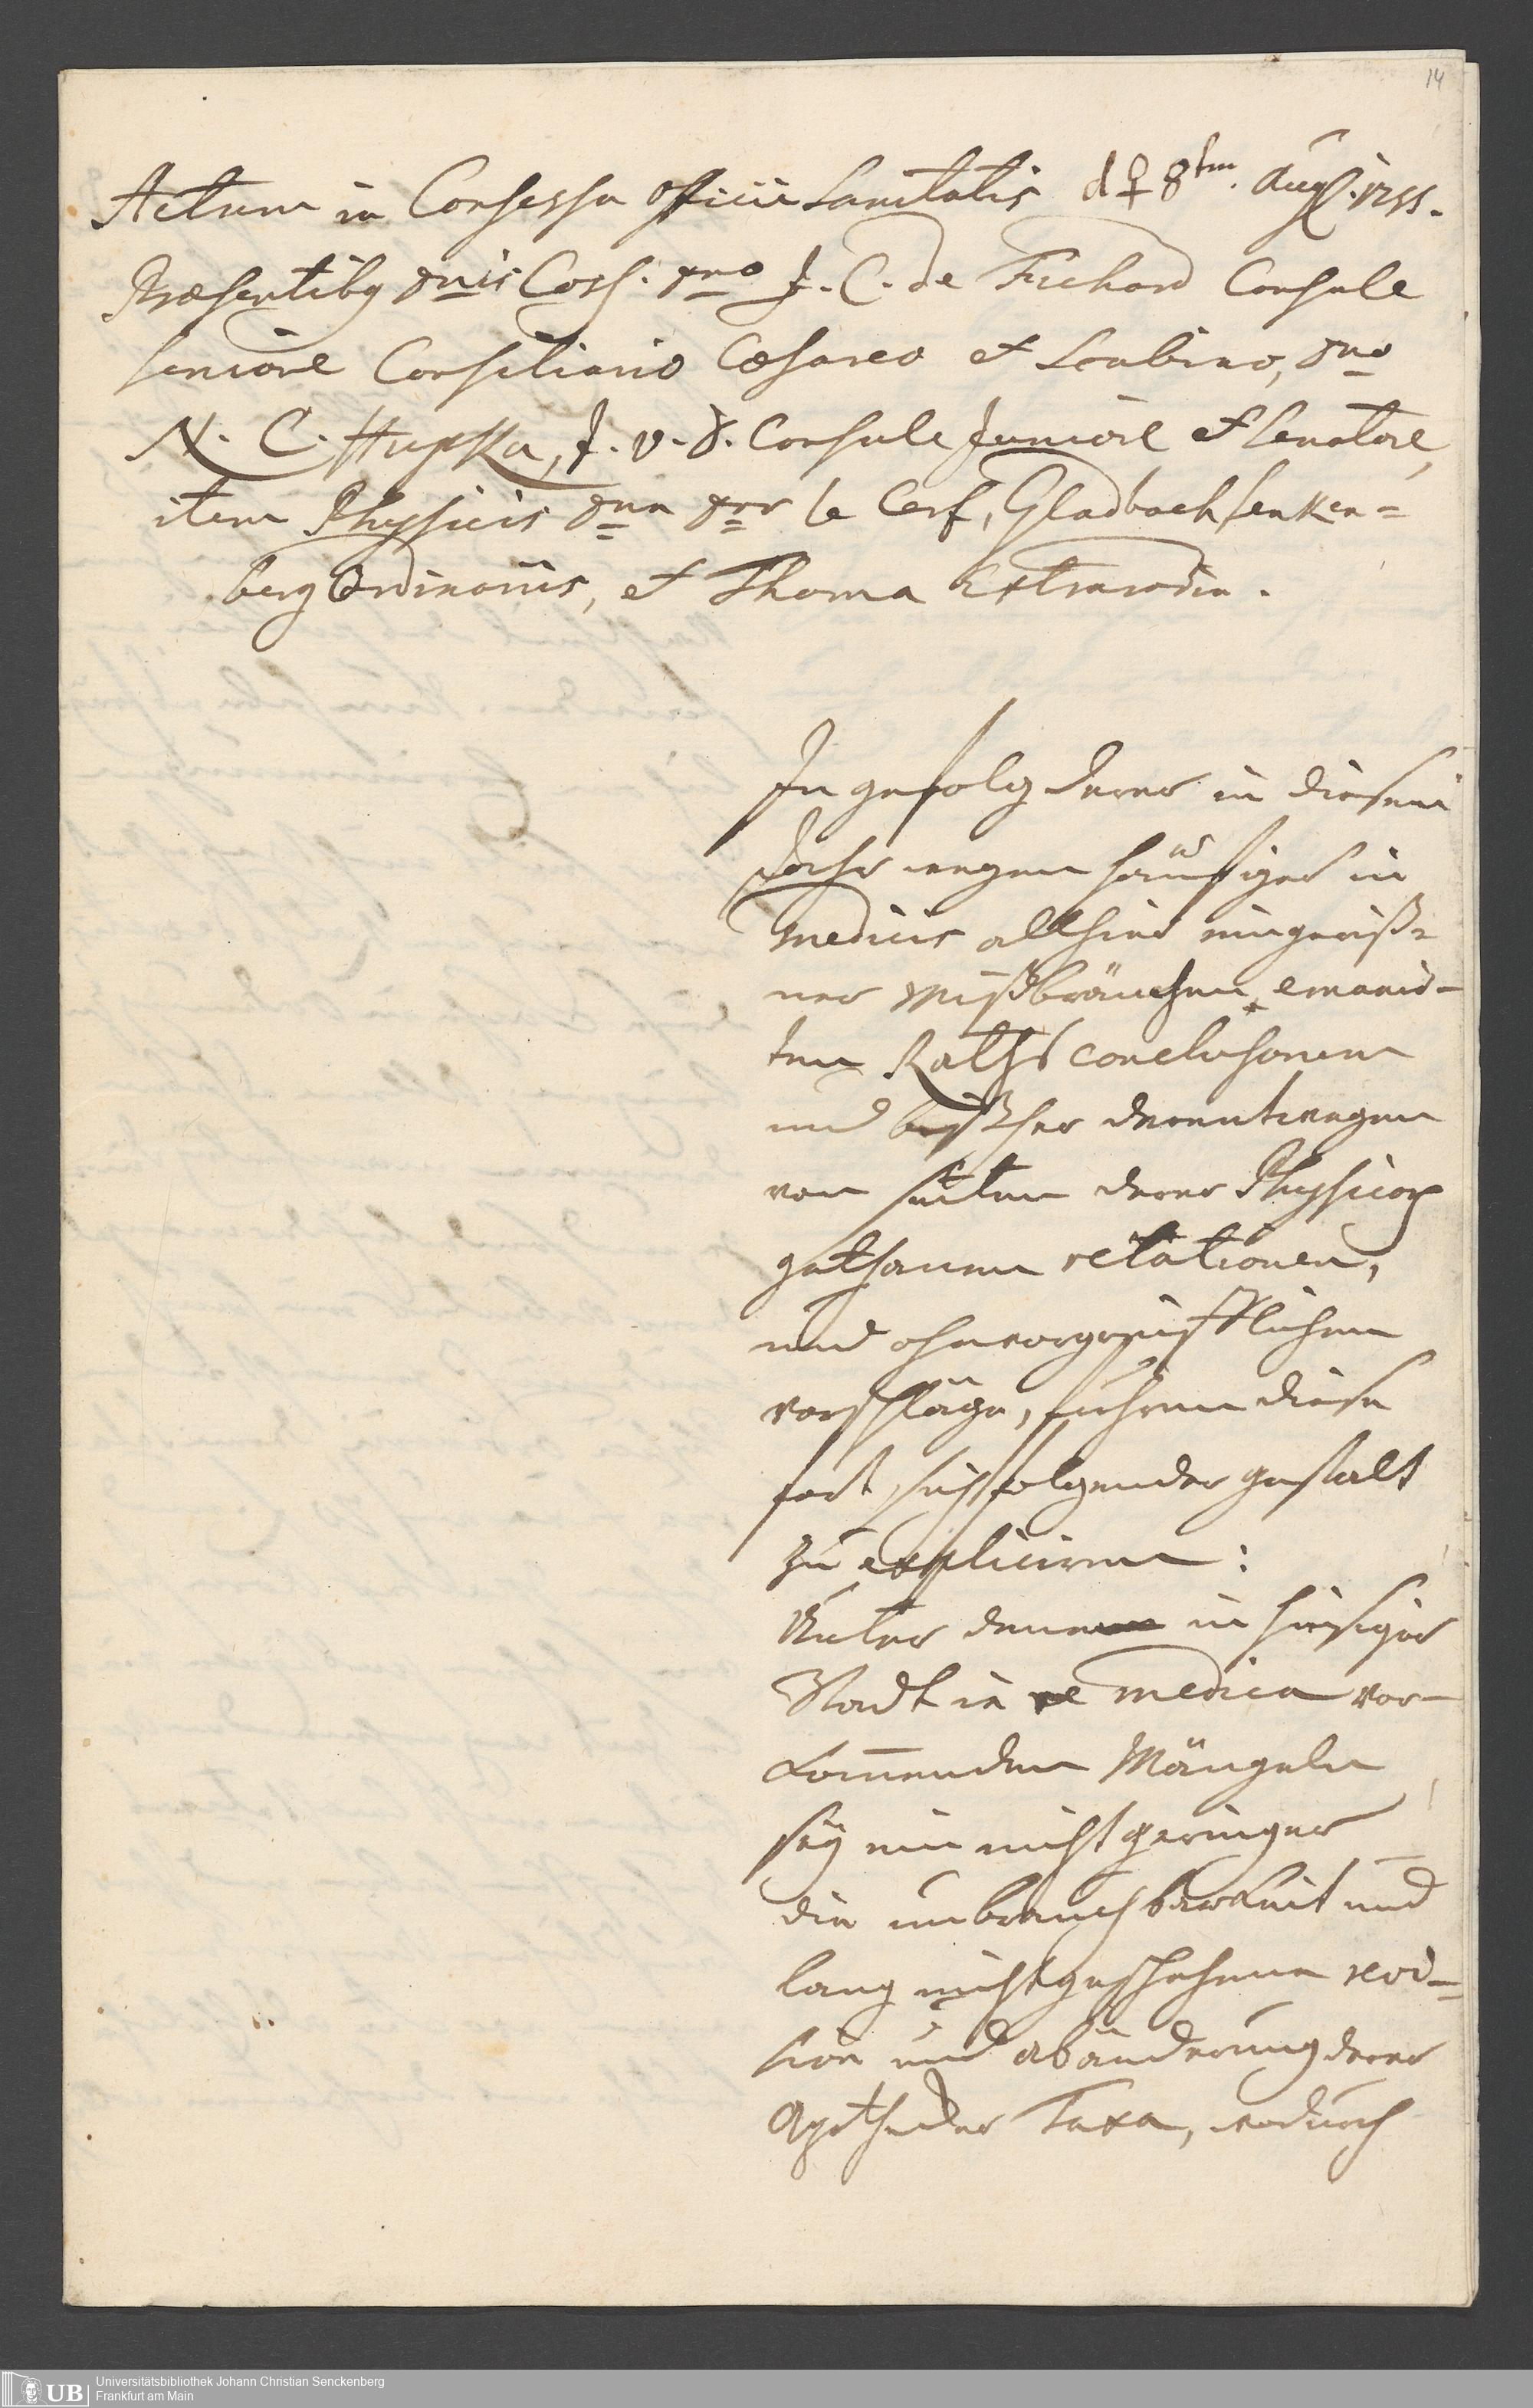 14
Actum in Consessu Officii Sanitatis d ♀ 8ten. Aug. 1755.
Præsentibq dnis Coss. dno J. C. de Fichard Consule
seniore Consiliario Cæsareo et Scabino, dno
N. C. Hupka, J. V. D. Consule Juniore et Senatore,
item Physicis dnn drr le Cerf, Gladbach Senken=
berg Ordinariis, et Thoma Extraordin.
In gefolg derer in diesem
Jahr wegen häufiger in
medicis allhier eingeriße=
ner Mißbräuchen emanir-
ten Raths conclusorum
und bißher derentwegen
von seiten derer Physicor
gethanen relationen,
und ohnvorgreifflichen
vorschläge, fuhren diese
fort, sich folgender gestalt
zu expliciren:
Unter denen in hiesiger
Stadt in re medica vor-
kom̅enden Mängeln
seÿ ein nicht geringer
die unbrauchbarkeit und
lang nicht geschehene revi-
sion und abänderung derer
Apothecker Taxa, wodurch
UB
Universitätsbibliothek Johann Christian Senckenberg
Frankfurt am Main